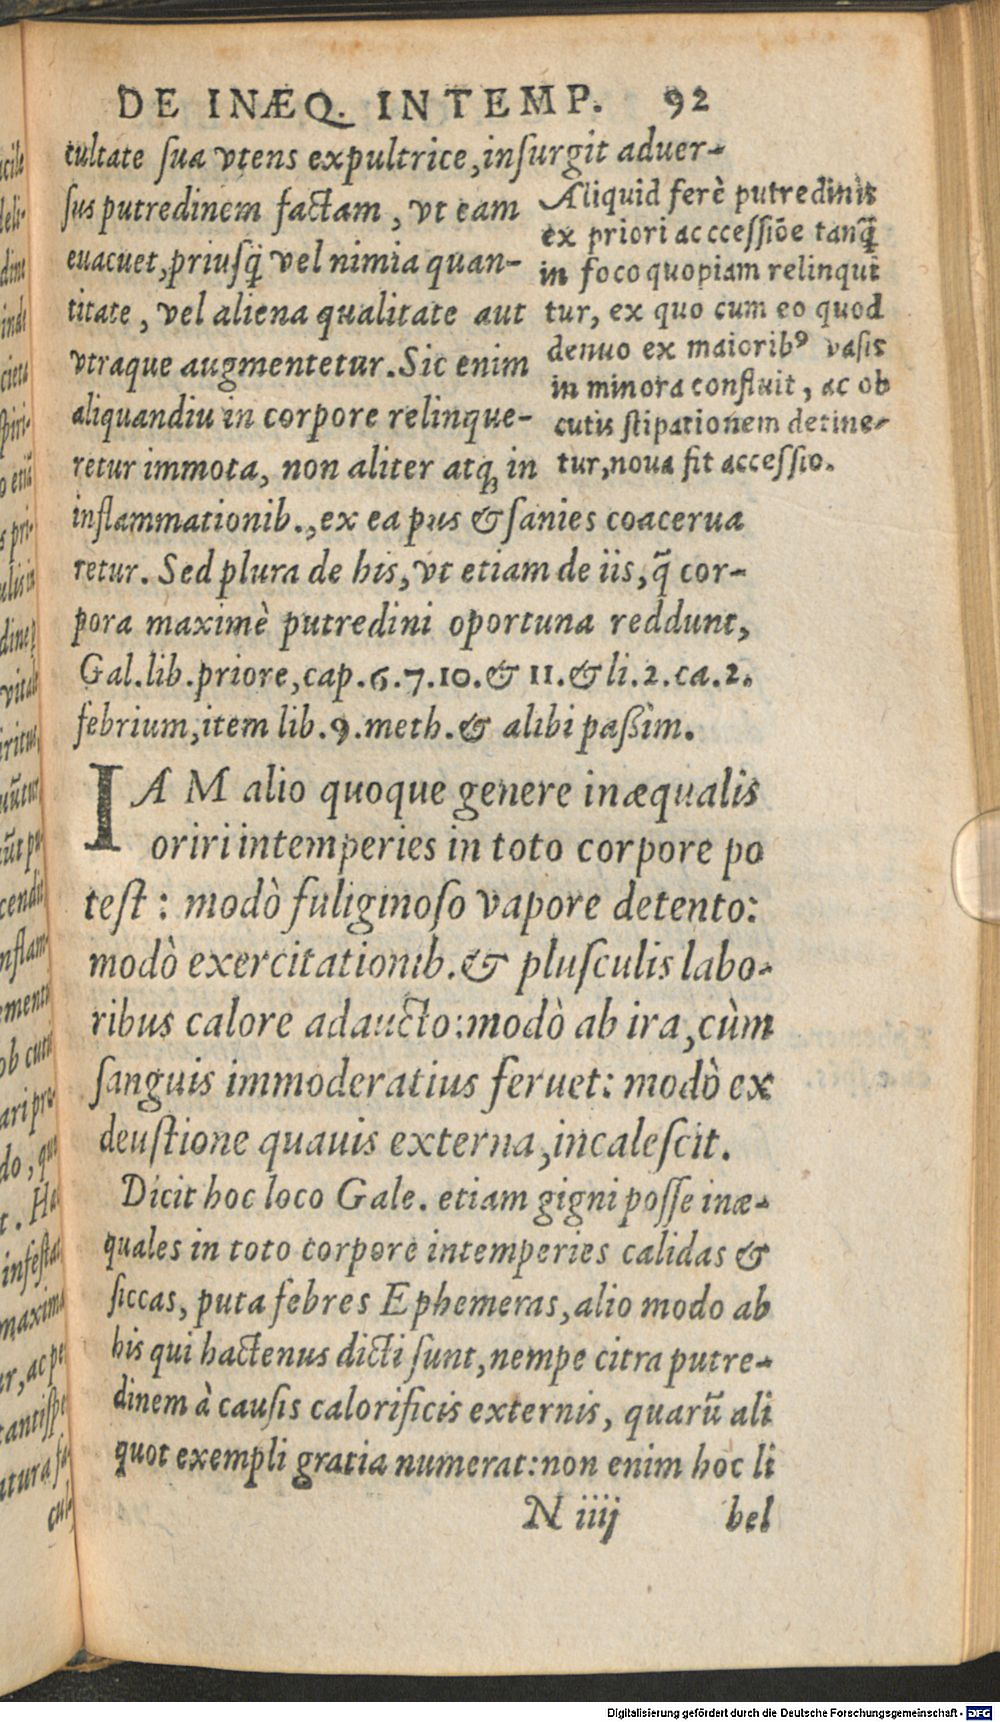 DE INÆQ. INTEMP. 92
cultate sua vtens expultrice, insurgit aduer-
sus putredinem factam, vt eam
euacuet, priusq̃ vel nimia quan-
titate, vel aliena qualitate aut
vtraque augmentetur. Sic enim
aliquandiu in corpore relinque-
retur immota, non aliter atq; in
Aliquid ferè putredinis
ex priori acccessiõe tanq̃
in foco quopiam relinqui
tur, ex quo cum eo quod
denuo ex maiorib⁹ vasis
in minora confluit, ac ob
cutis stipationem detine-
tur, noua fit accessio.
inflammationib., ex ea pus & sanies coacerua
retur. Sed plura de his, vt etiam de iis, q̃ cor-
pora maximè putredini oportuna reddunt,
Gal. lib. priore, cap. 6. 7. 10. & 11. & li. 2. ca. 2.
febrium, item lib. 9. meth. & alibi passim.
IAM alio quoque genere inæqualis
oriri intemperies in toto corpore po
test: modò fuliginoso vapore detento:
modò exercitationib. & plusculis labo-
ribus calore adaucto: modò ab ira, cùm
sanguis immoderatius feruet: modò ex
deustione quauis externa, incalescit.
Dicit hoc loco Gale. etiam gigni posse inæ-
quales in toto corpore intemperies calidas &
siccas, puta febres Ephemeras, alio modo ab
his qui hactenus dicti sunt, nempe citra putre-
dinem à causis calorificis externis, quarũ ali
quot exempli gratia numerat: non enim hoc li
N iiij bel
Digitalisierung gefördert durch die Deutsche Forschungsgemeinschaft - DFG